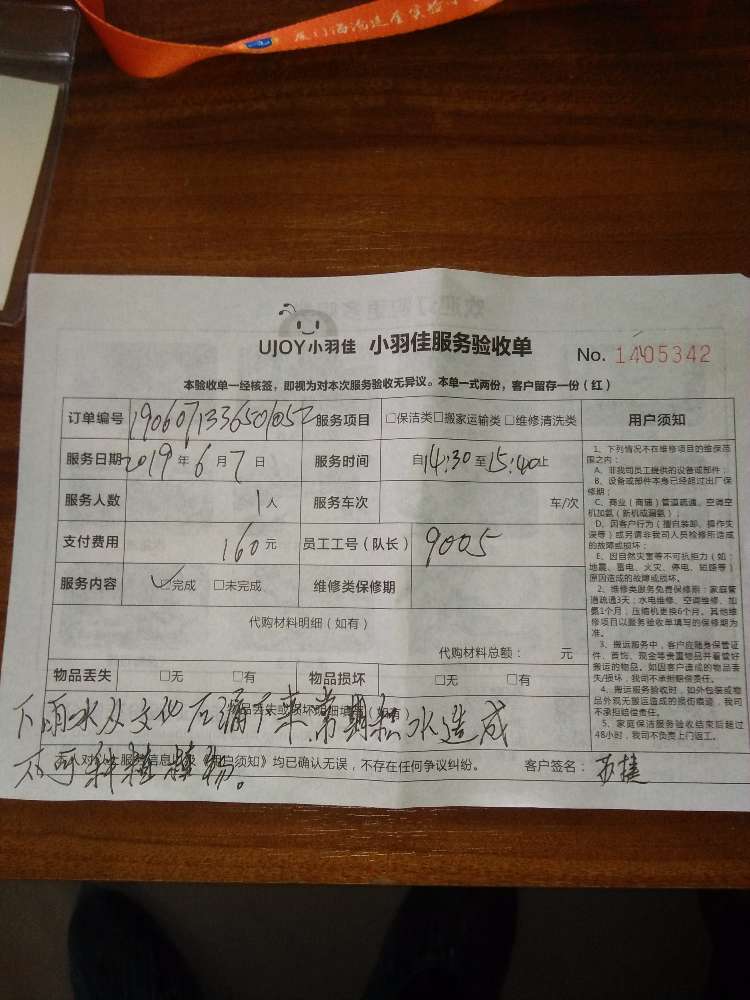 厦门海沧进修实验小
UJOY小羽佳 小羽佳服务验收单 No. 1405342
本验收单一经核签，即视为对本次服务验收无异议。本单一式两份，客户留存一份（红）
订单编号 服务项目 □保洁类□搬家运输类 □维修清洗类
服务日期 2019年6月7日 服务时间 自14:30至15:40止
服务人数 1人 服务车次 车/次
支付费用 160元 员工工号（队长） 9005
服务内容 ☑完成 □未完成 维修类保修期
代购材料明细（如有）
代购材料总额： 元
物品丢失 □无 □有 物品损坏 □无 □有
下雨水从文化石漏下来常期积水造成
不可种植植物。
《用户须知》均已确认无误，不存在任何争议纠纷。 客户签名：
用户须知
1、下列情况不在维修项目的维保范
围之内：
A、非我司员工提供的设备或部件；
B、设备或部件本身已经超过出厂保
修期；
C、商业（商铺）管道疏通、空调空
机加氨（新机或漏氨）；
D、因客户行为（擅自装卸、操作失
误等）或另请非我司人员检修所造成
的故障或损坏；
E、因自然灾害等不可抗拒力（如：
地震、雷电、火灾、停电、短路等）
原因造成的故障或损坏。
2、维修类服务免费保修期：家庭管
道疏通3天；水电维修、空调维修、加
氨1个月；压缩机更换6个月。其他维
修项目以服务验收单填写的保修期为
准。
3、搬运服务中，客户应随身保管证
件、首饰、现金等贵重物品并看管好
搬运的物品。如因客户造成的物品丢
失/损坏，我司不承担赔偿责任。
4、搬运服务验收时，如外包装或物
品外观无搬运造成的损伤痕迹，我司
不承担赔偿责任。
5、家庭保洁服务验收结束后超过
48小时，我司不负责上门返工。